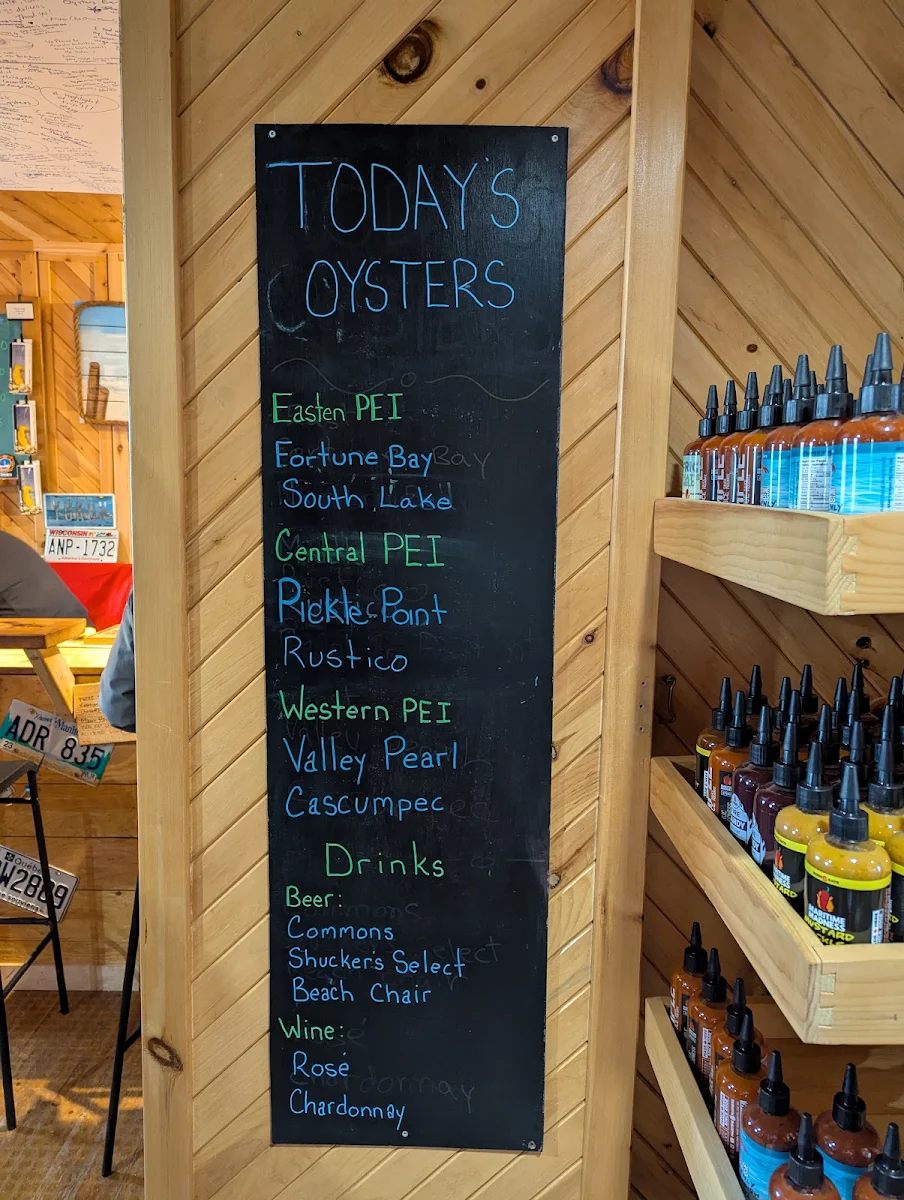 TODAY'S
OYSTERS
Easten PEI
Fortune Bay
South Lake
Central PEI
Pickle Point
Rustico
Western PEI
Valley Pearl
Cascumpec
Drinks
Beer:
Commons
Shuckers Select
Beach Chair
Wine:
Rosé
Chardonnay
WISCONSIN
ANP-1732
ADR 835
Québec
W2889
MARITIME
MADNESS
MUSTARD